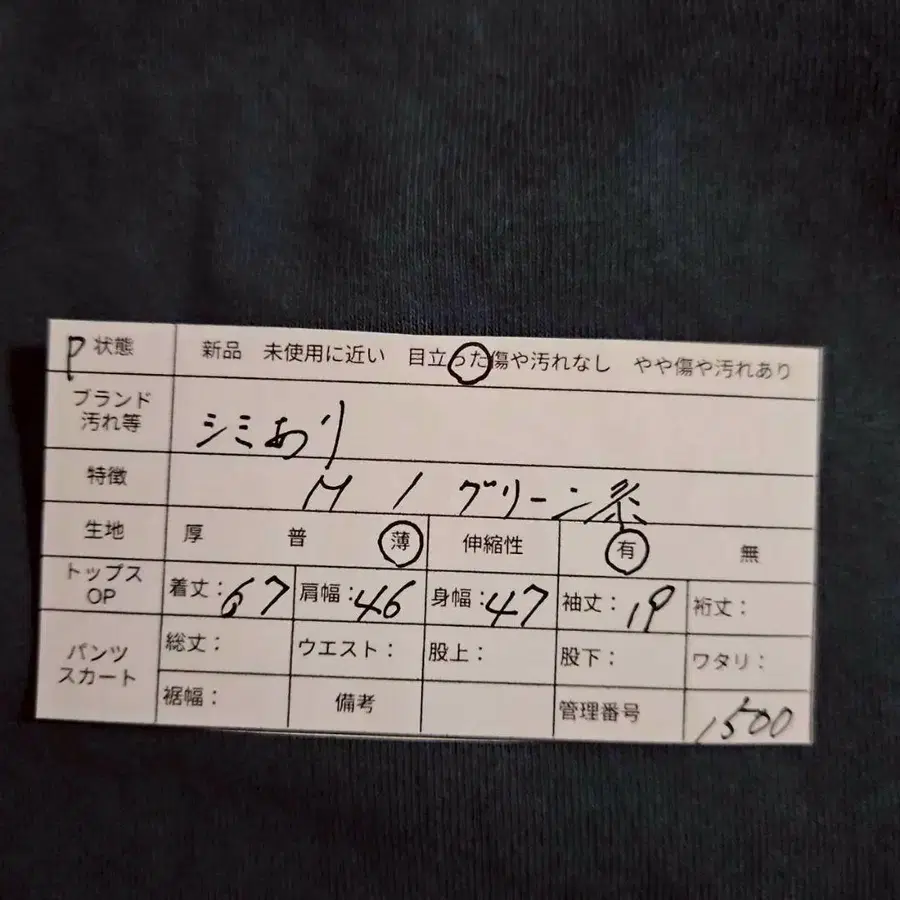 P 状態 新品 未使用に近い 目立った傷や汚れなし やや傷や汚れあり
ブランド
汚れ等 シミあり
特徴 M / グリーン系
生地 厚 普 薄 伸縮性 有 無
トップス
OP 着丈:67 肩幅:46 身幅:47 袖丈:19 裄丈:
パンツ
スカート 総丈: ウエスト: 股上: 股下: ワタリ:
裾幅: 備考 管理番号 1500